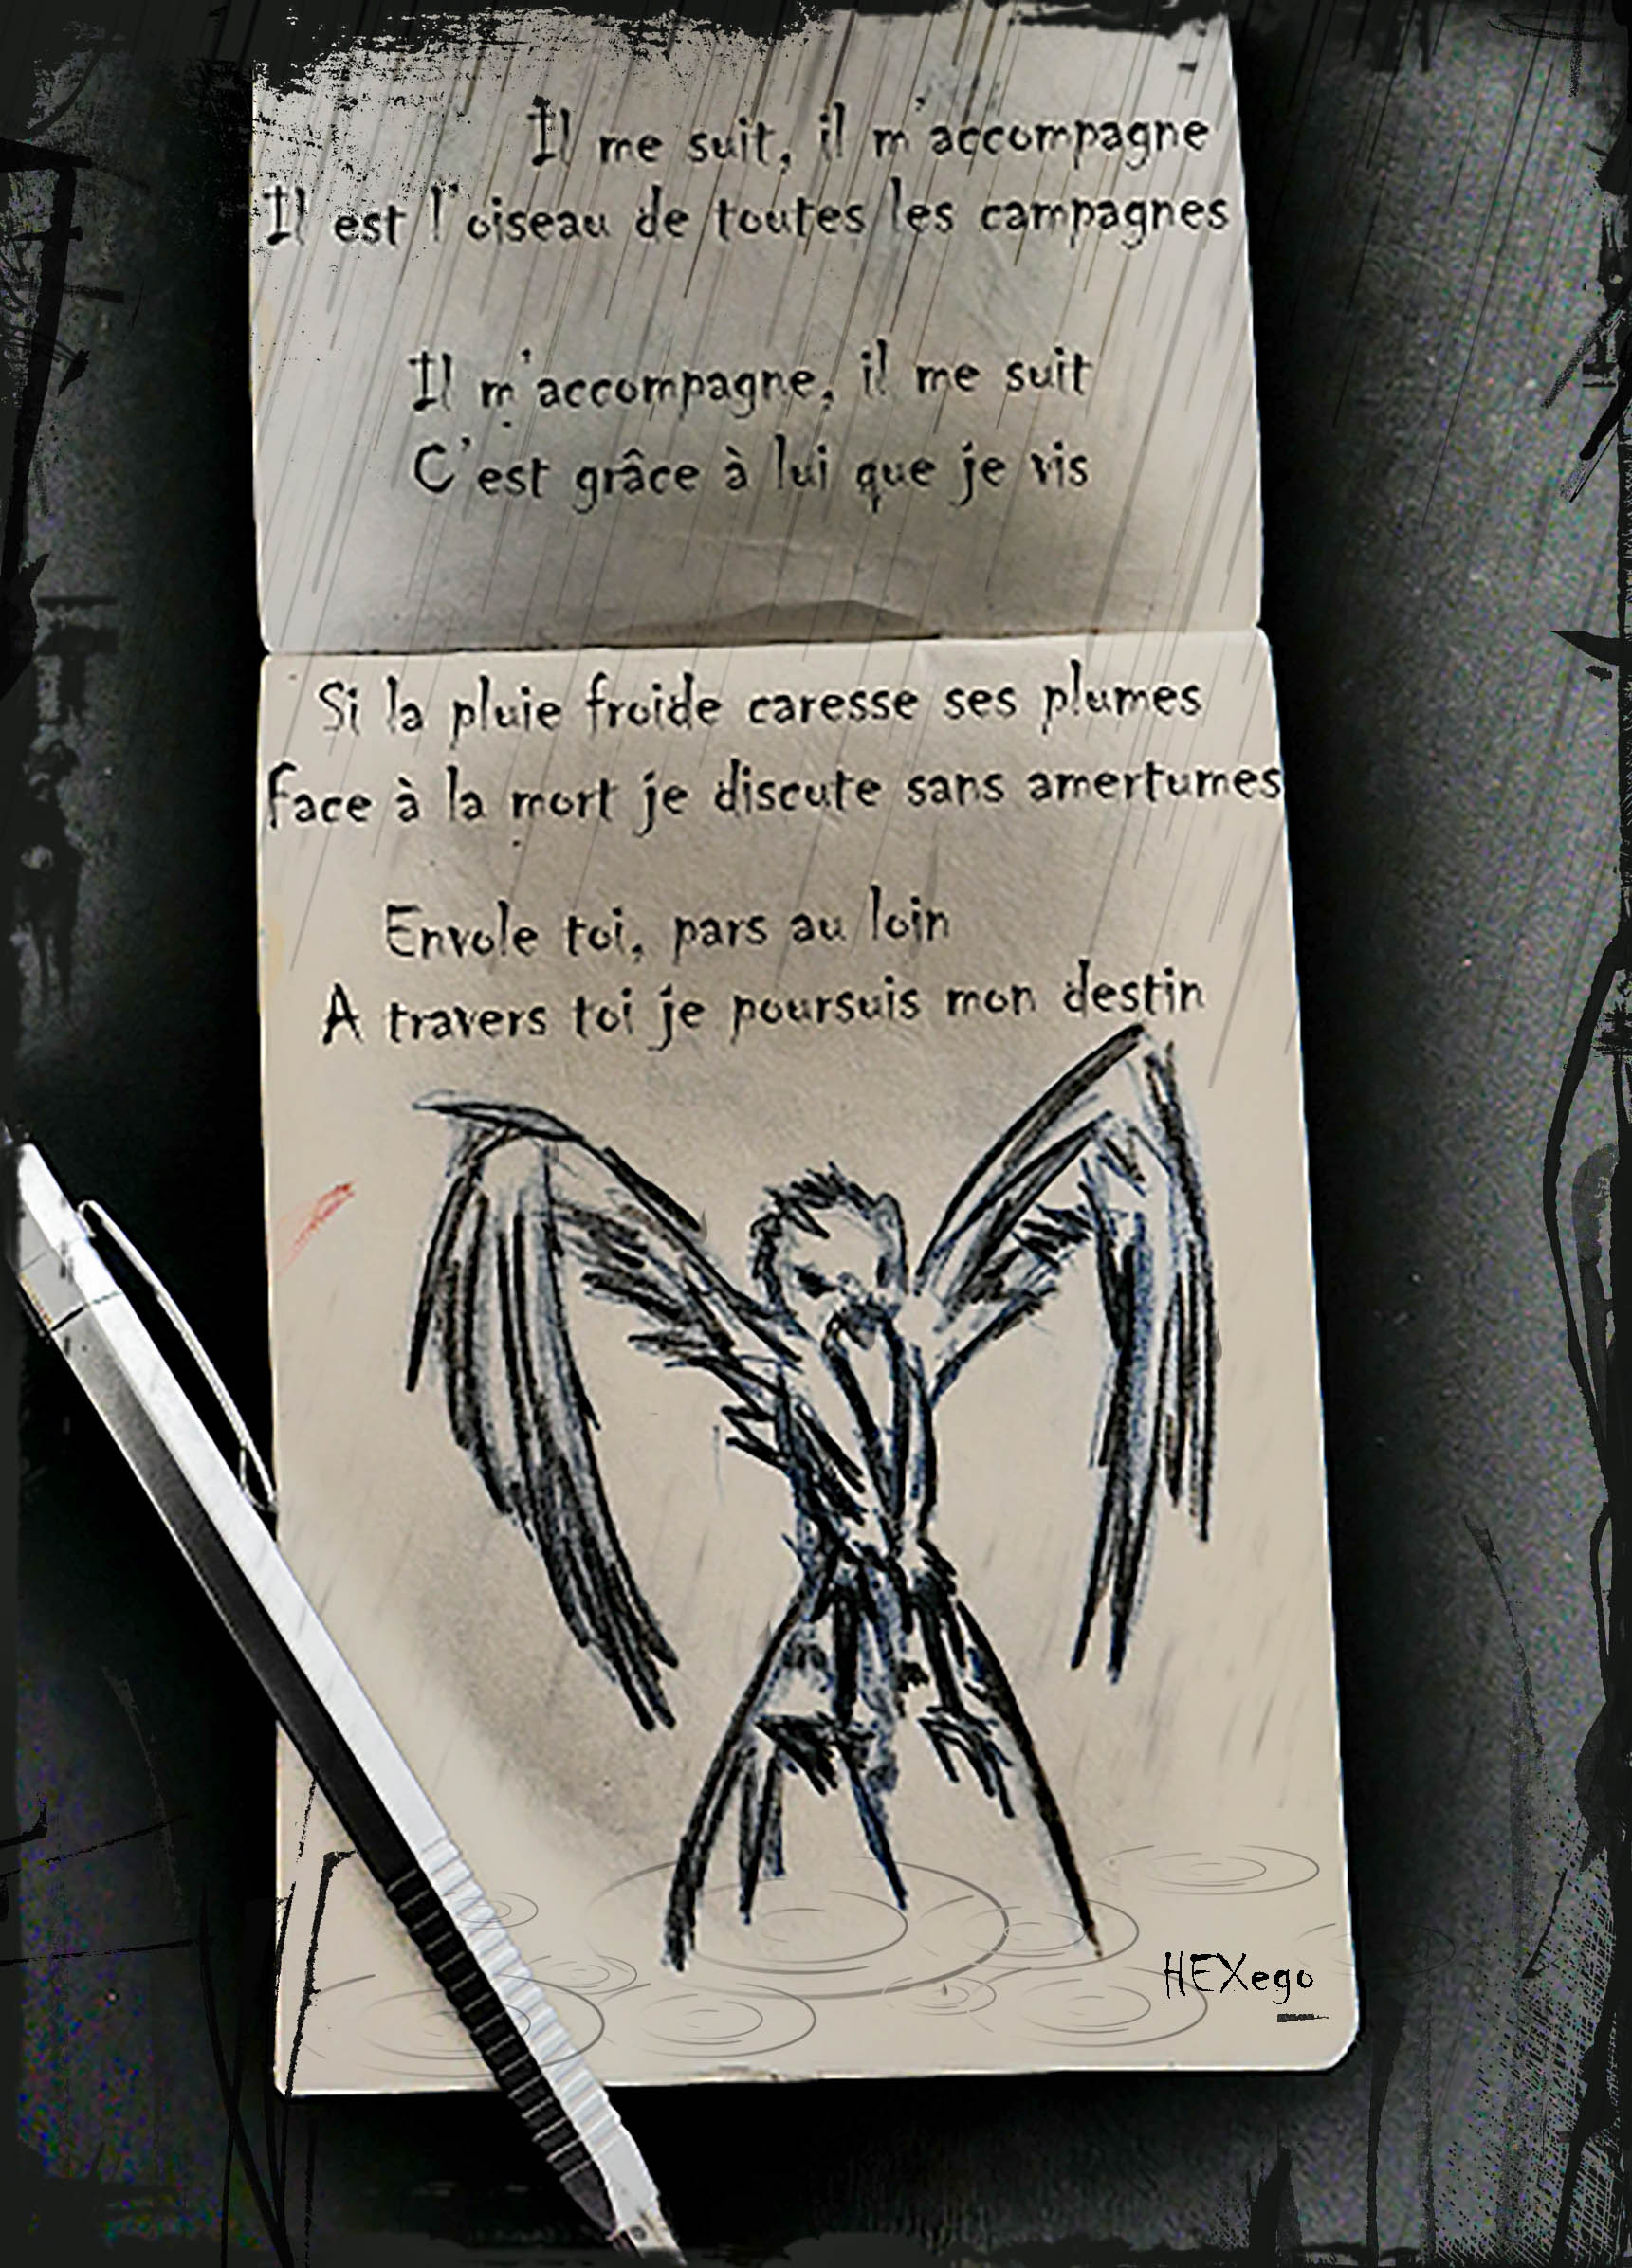 Il me suit, il m'accompagne
Il est l'oiseau de toutes les campagnes
Il m'accompagne, il me suit
C'est grâce à lui que je vis
Si la pluie froide caresse ses plumes
Face à la mort je discute sans amertumes
Envole toi, pars au loin
A travers toi je poursuis mon destin
HEXego